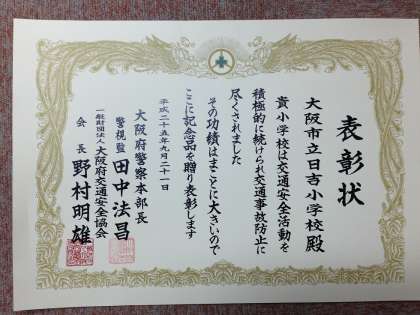 表彰状
大阪市立日吉小学校殿
貴小学校は交通安全活動を
積極的に続けられ交通事故防止に
尽くされました
その功績はまことに大きいので
ここに記念品を贈り表彰します
平成二十五年九月二十一日
大阪府警察本部長
警視監 田中法昌
一般財団法人 大阪府交通安全協会
会長 野村明雄